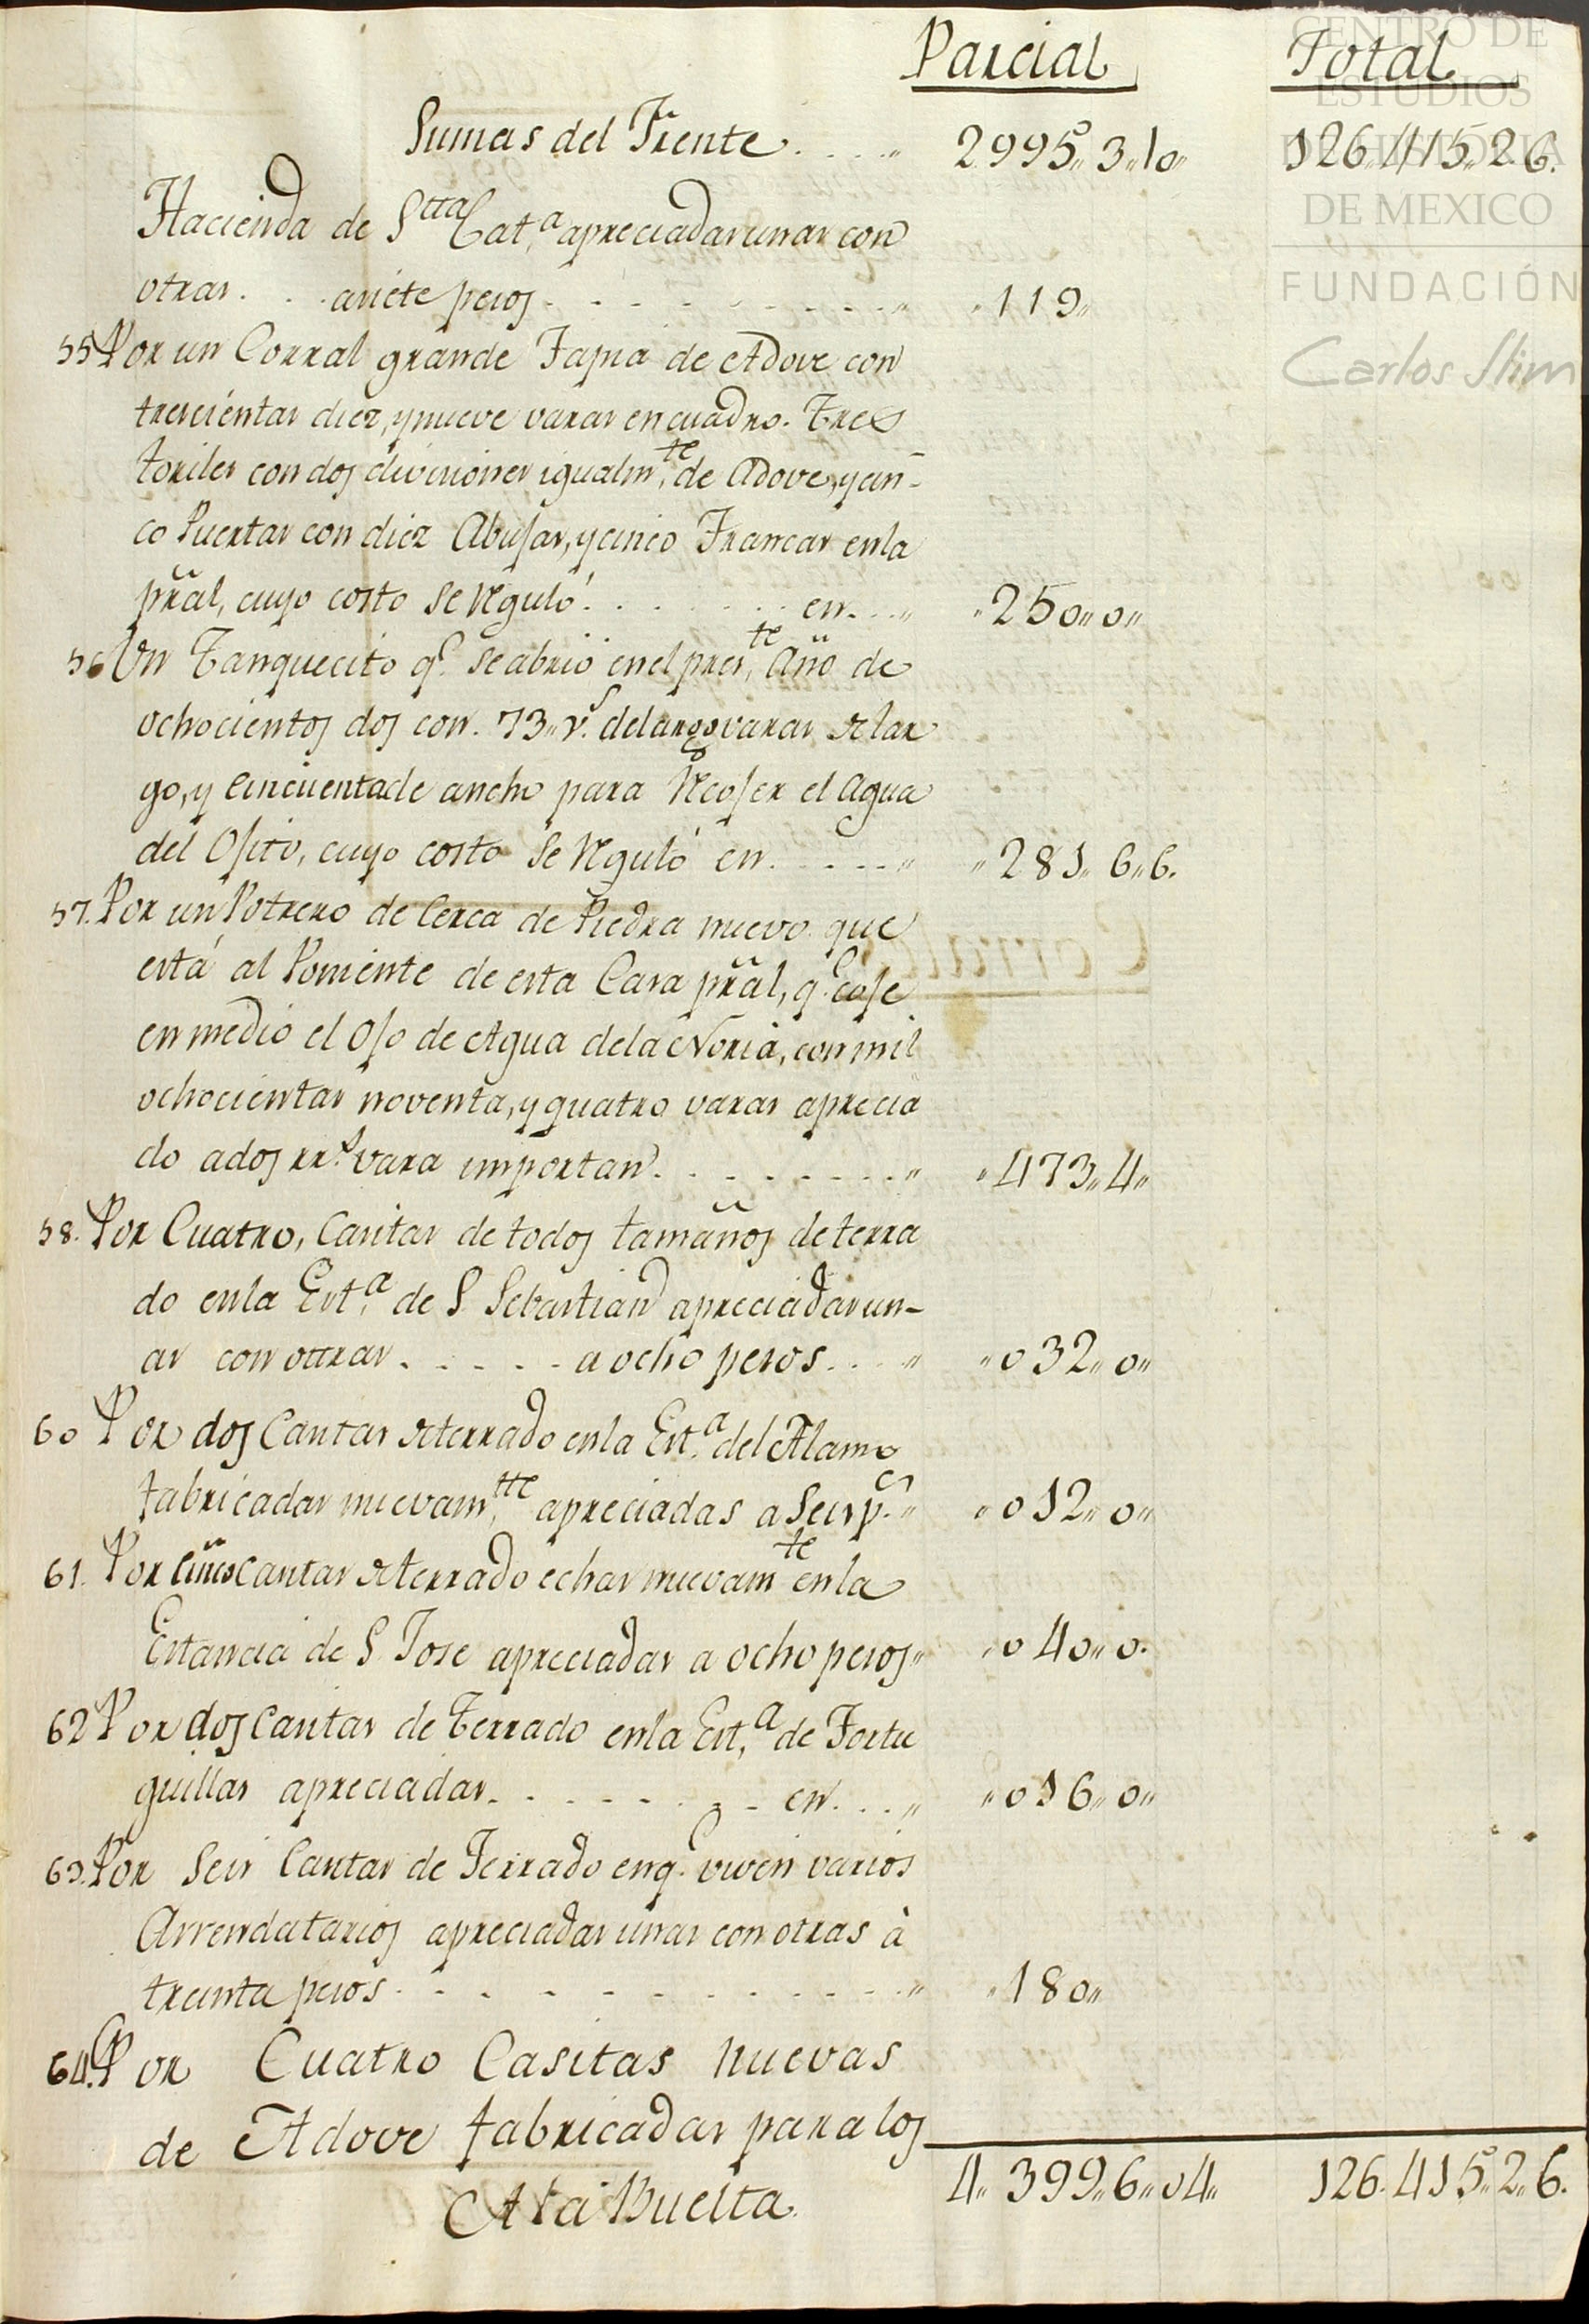 Parcial Total
Sumas del Frente.... 2995,,3,,10,, 126.415,,2,,6.
Hacienda de Stta Cat.a apreciadas unas con
otras. . . a siete pesos - - - - - - - - ,, ,,119,,
55 Por un Corral grande Tapia de Adove con
trescientas diez, y nueve varas en cuadro. Tres
toriles con dos diviciones igualm.te de Adove, y cin-
co Puertas con diez Abujas, y cinco Trancas en la
pral, cuyo costo se reguló . . . . . . . en. . ,, ,,250,,0,,
56 Un Tanquecito q.e se abrio en el pres.te año de
ochocientos dos con. 73,, v.s de largo varas de lar
go, y cincuenta de ancho para recojer el Agua
del Ojito, cuyo costo se reguló en. . - - - ,, ,,281,,6,,6.
57. Por un Potrero de Cerca de Piedra nuevo que
está al Poniente de esta Casa pral, q.e coje
en medio el Ojo de Agua de la Noria, con mil
ochocientas noventa, y quatro varas aprecia
do a dos rr.s vara importan. . - - - - - - . ,, ,,473,,4,,
58. Por Cuatro, Casitas de todos tamaños de terra
do en la Est.a de S. Sebastian apreciadas un-
as con otras. . - - - - a ocho pesos. . . ,, ,,032,,0,,
60 Por dos Casitas de terrado en la Est.a del Alamo
fabricadas nuevam.tte apreciadas a Seis p.s ,, ,,012,,0,,
61. Por Cinco Casitas de terrado echas nuevam.te en la
Estancia de S. Jose apreciadas a ocho pesos ,, ,,040,,0.
62 Por dos Casitas de Terrado en la Est.a de Tortu
guillas apreciadas. - - - - - - - - en. . . ,, ,,016,,0,,
63. Por Seis Casitas de Terrado en q.e viven varios
Arrendatarios apreciadas unas con otras à
treinta pesos. . - - - - - - - - - - ,, ,,180,,
64. Por Cuatro Casitas nuevas
de Adove fabricadas para los
A la Buelta. 4,,399,,6,,04,, 126.415,,2,,6.
CENTRO DE
ESTUDIOS
DE HISTORIA
DE MEXICO
FUNDACIÓN
Carlos Slim